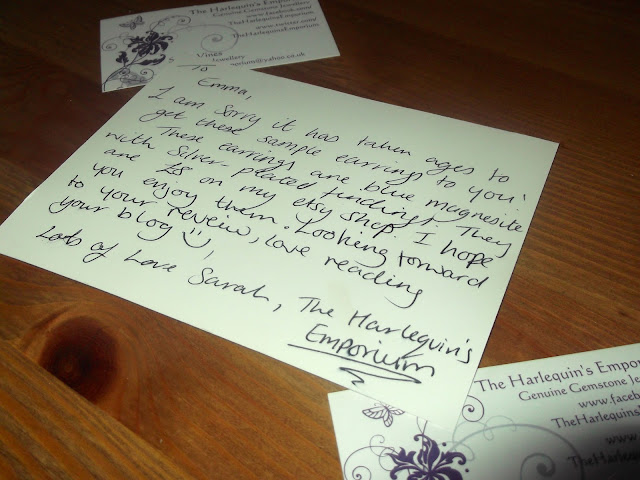 The Harlequin's Empor
Genuine Gemstone Jewellery
www.facebook.com/
TheHarlequinsEmporium
www.twitter.com/
TheHarlequinsEmporium
Vines
Jewellery
@yahoo.co.uk
To
Emma,
I am sorry it has taken ages to
get these sample earrings to you!
These earrings are blue magnesite
with silver-plated findings. They
are £8 on my etsy shop. I hope
you enjoy them. Looking forward
to your reveiw, love reading
your blog :)
Lots of Love Sarah, The Harlequin's
Emporium
The Harlequin's Empo
Genuine Gemstone Je
www.faceb
TheHarlequins
www.
TheHarlequin